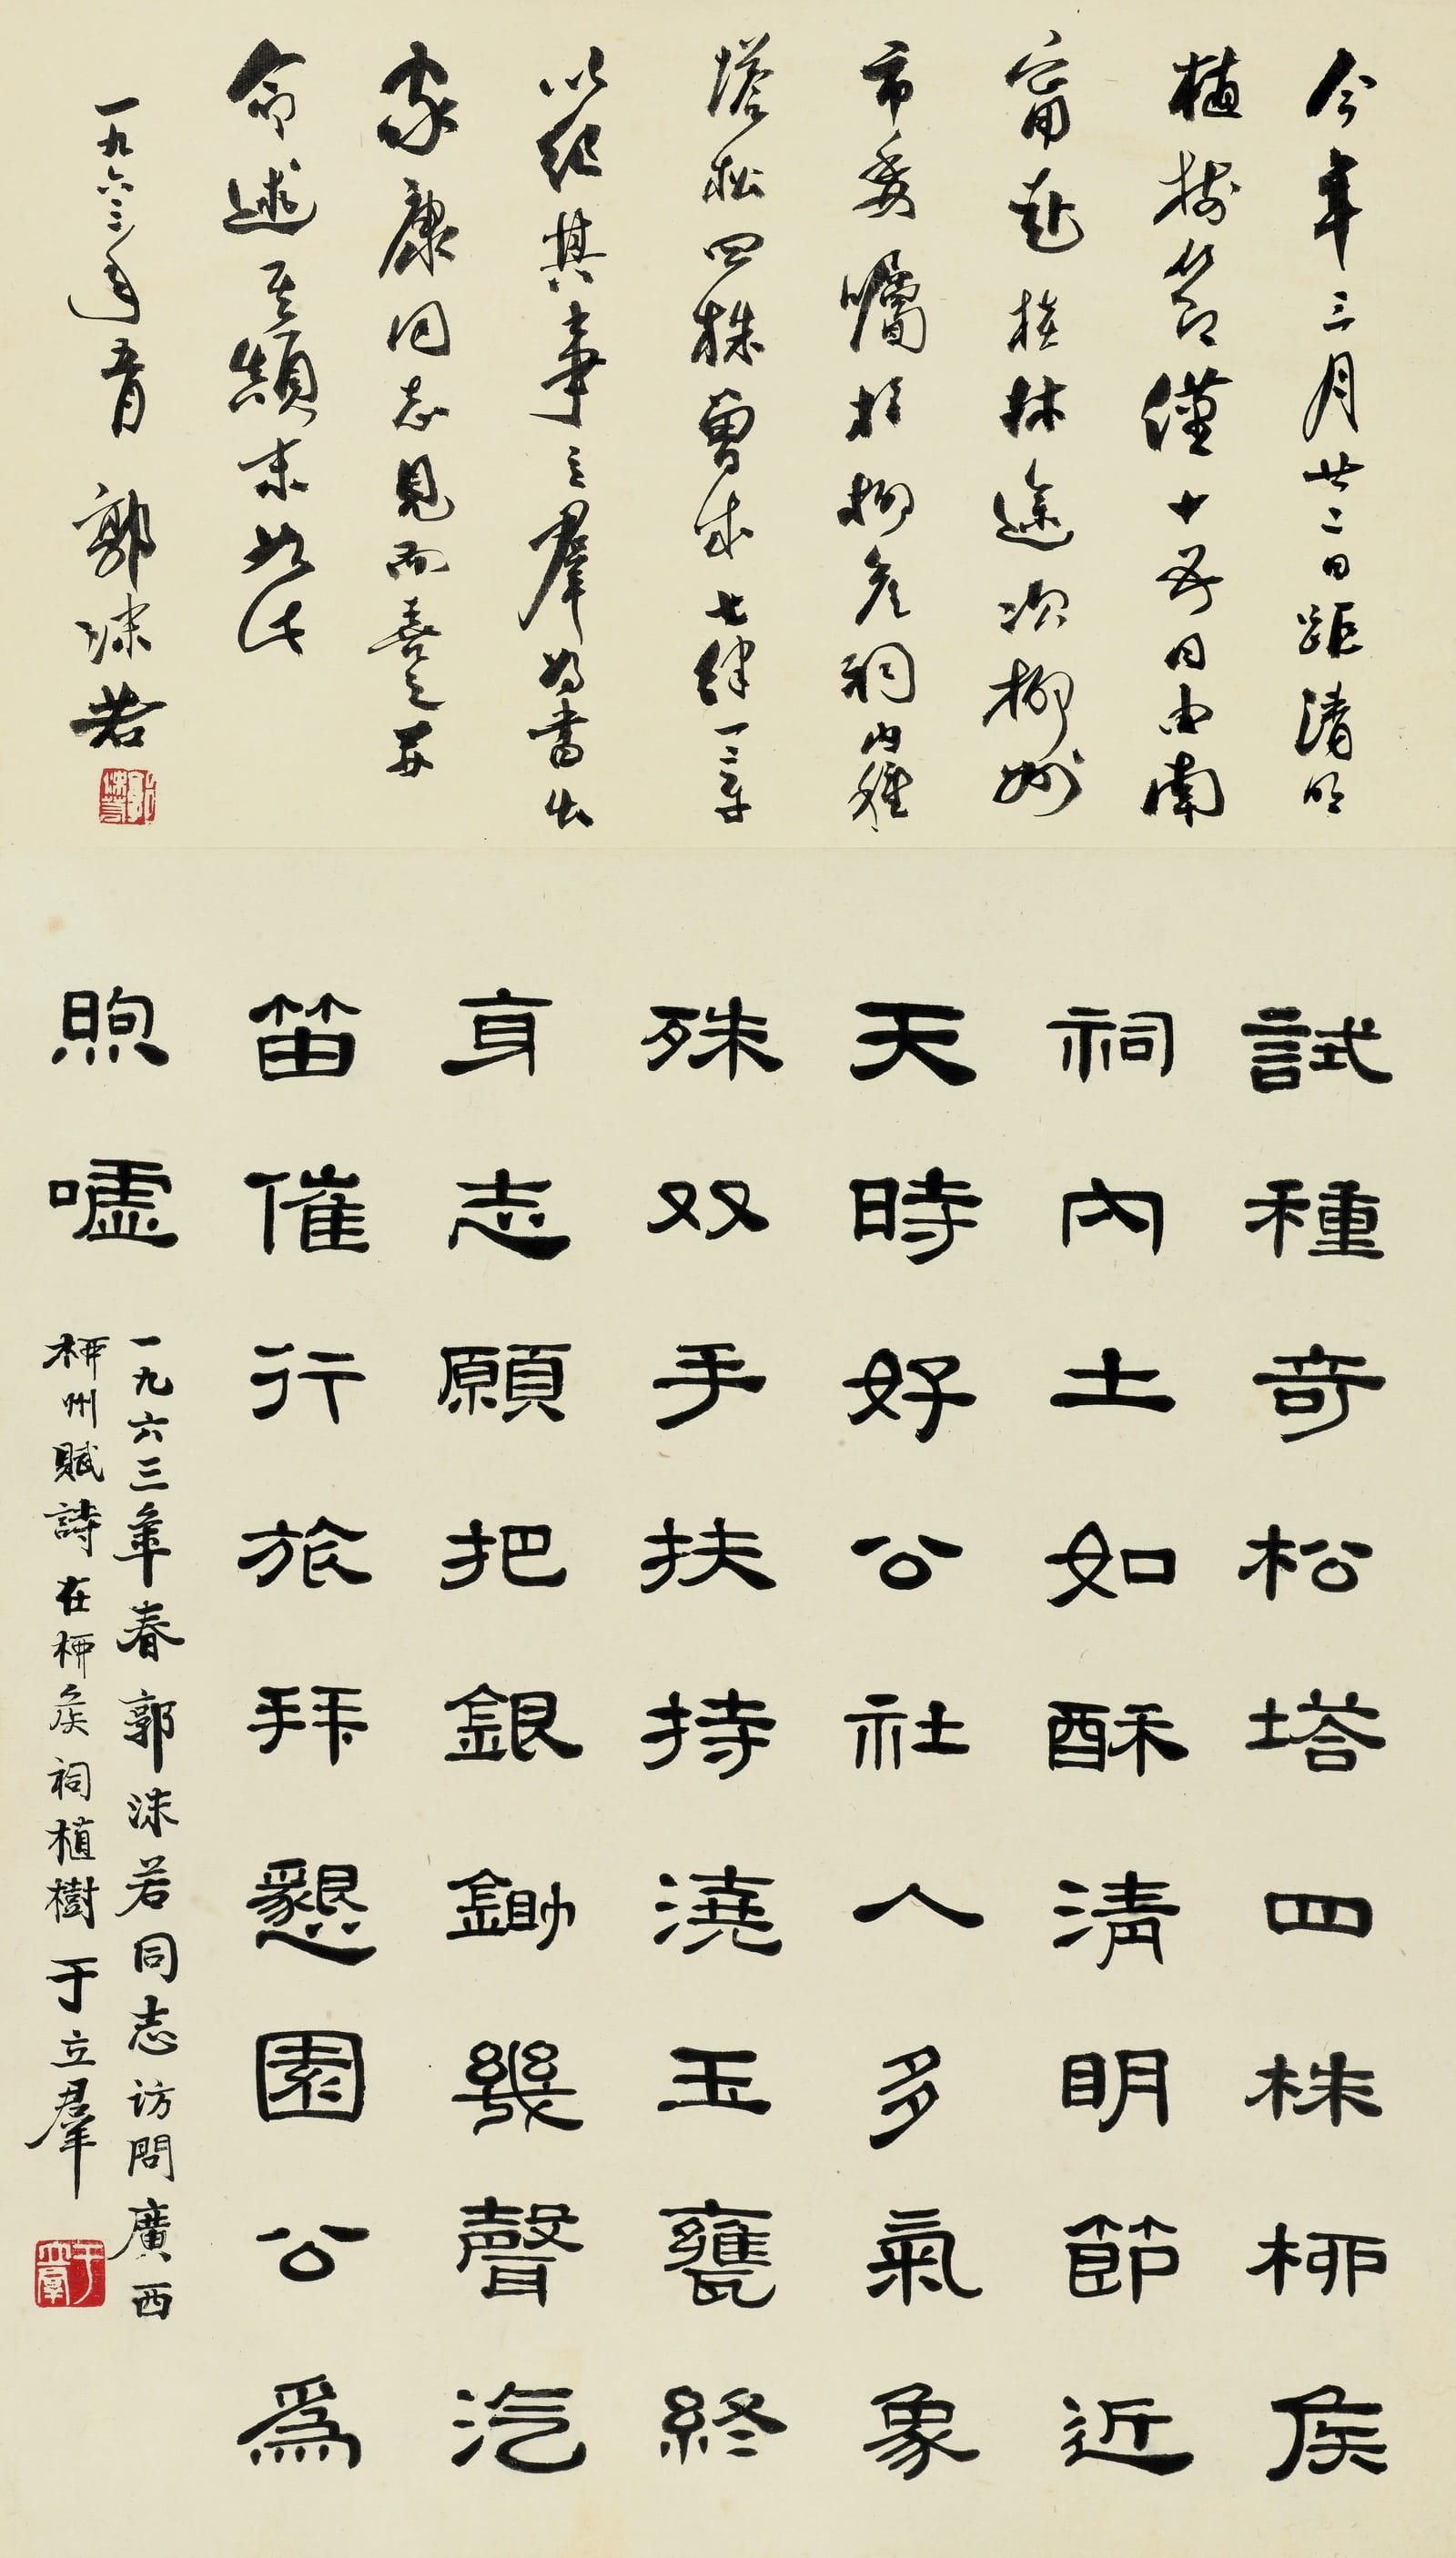 今年三月廿二日距清明
植樹節僅十五日由南
甯赴桂林途次柳州
市委囑於柳矦祠內種
塔松四株曾成七律一章
以紀其事立羣為書出
家康同志見而喜之並
命述其顛末如此
一九六三年春 郭沫若
試種奇松塔四株柳矦
祠內土如酥清明節近
天時好公社人多氣象
殊双手扶持澆玉甕終
身志願把銀鋤幾聲汽
笛催行旅拜懇園公為
煦噓
一九六三年春郭沫若同志访問廣西
柳州賦詩在柳矦祠植樹 于立羣